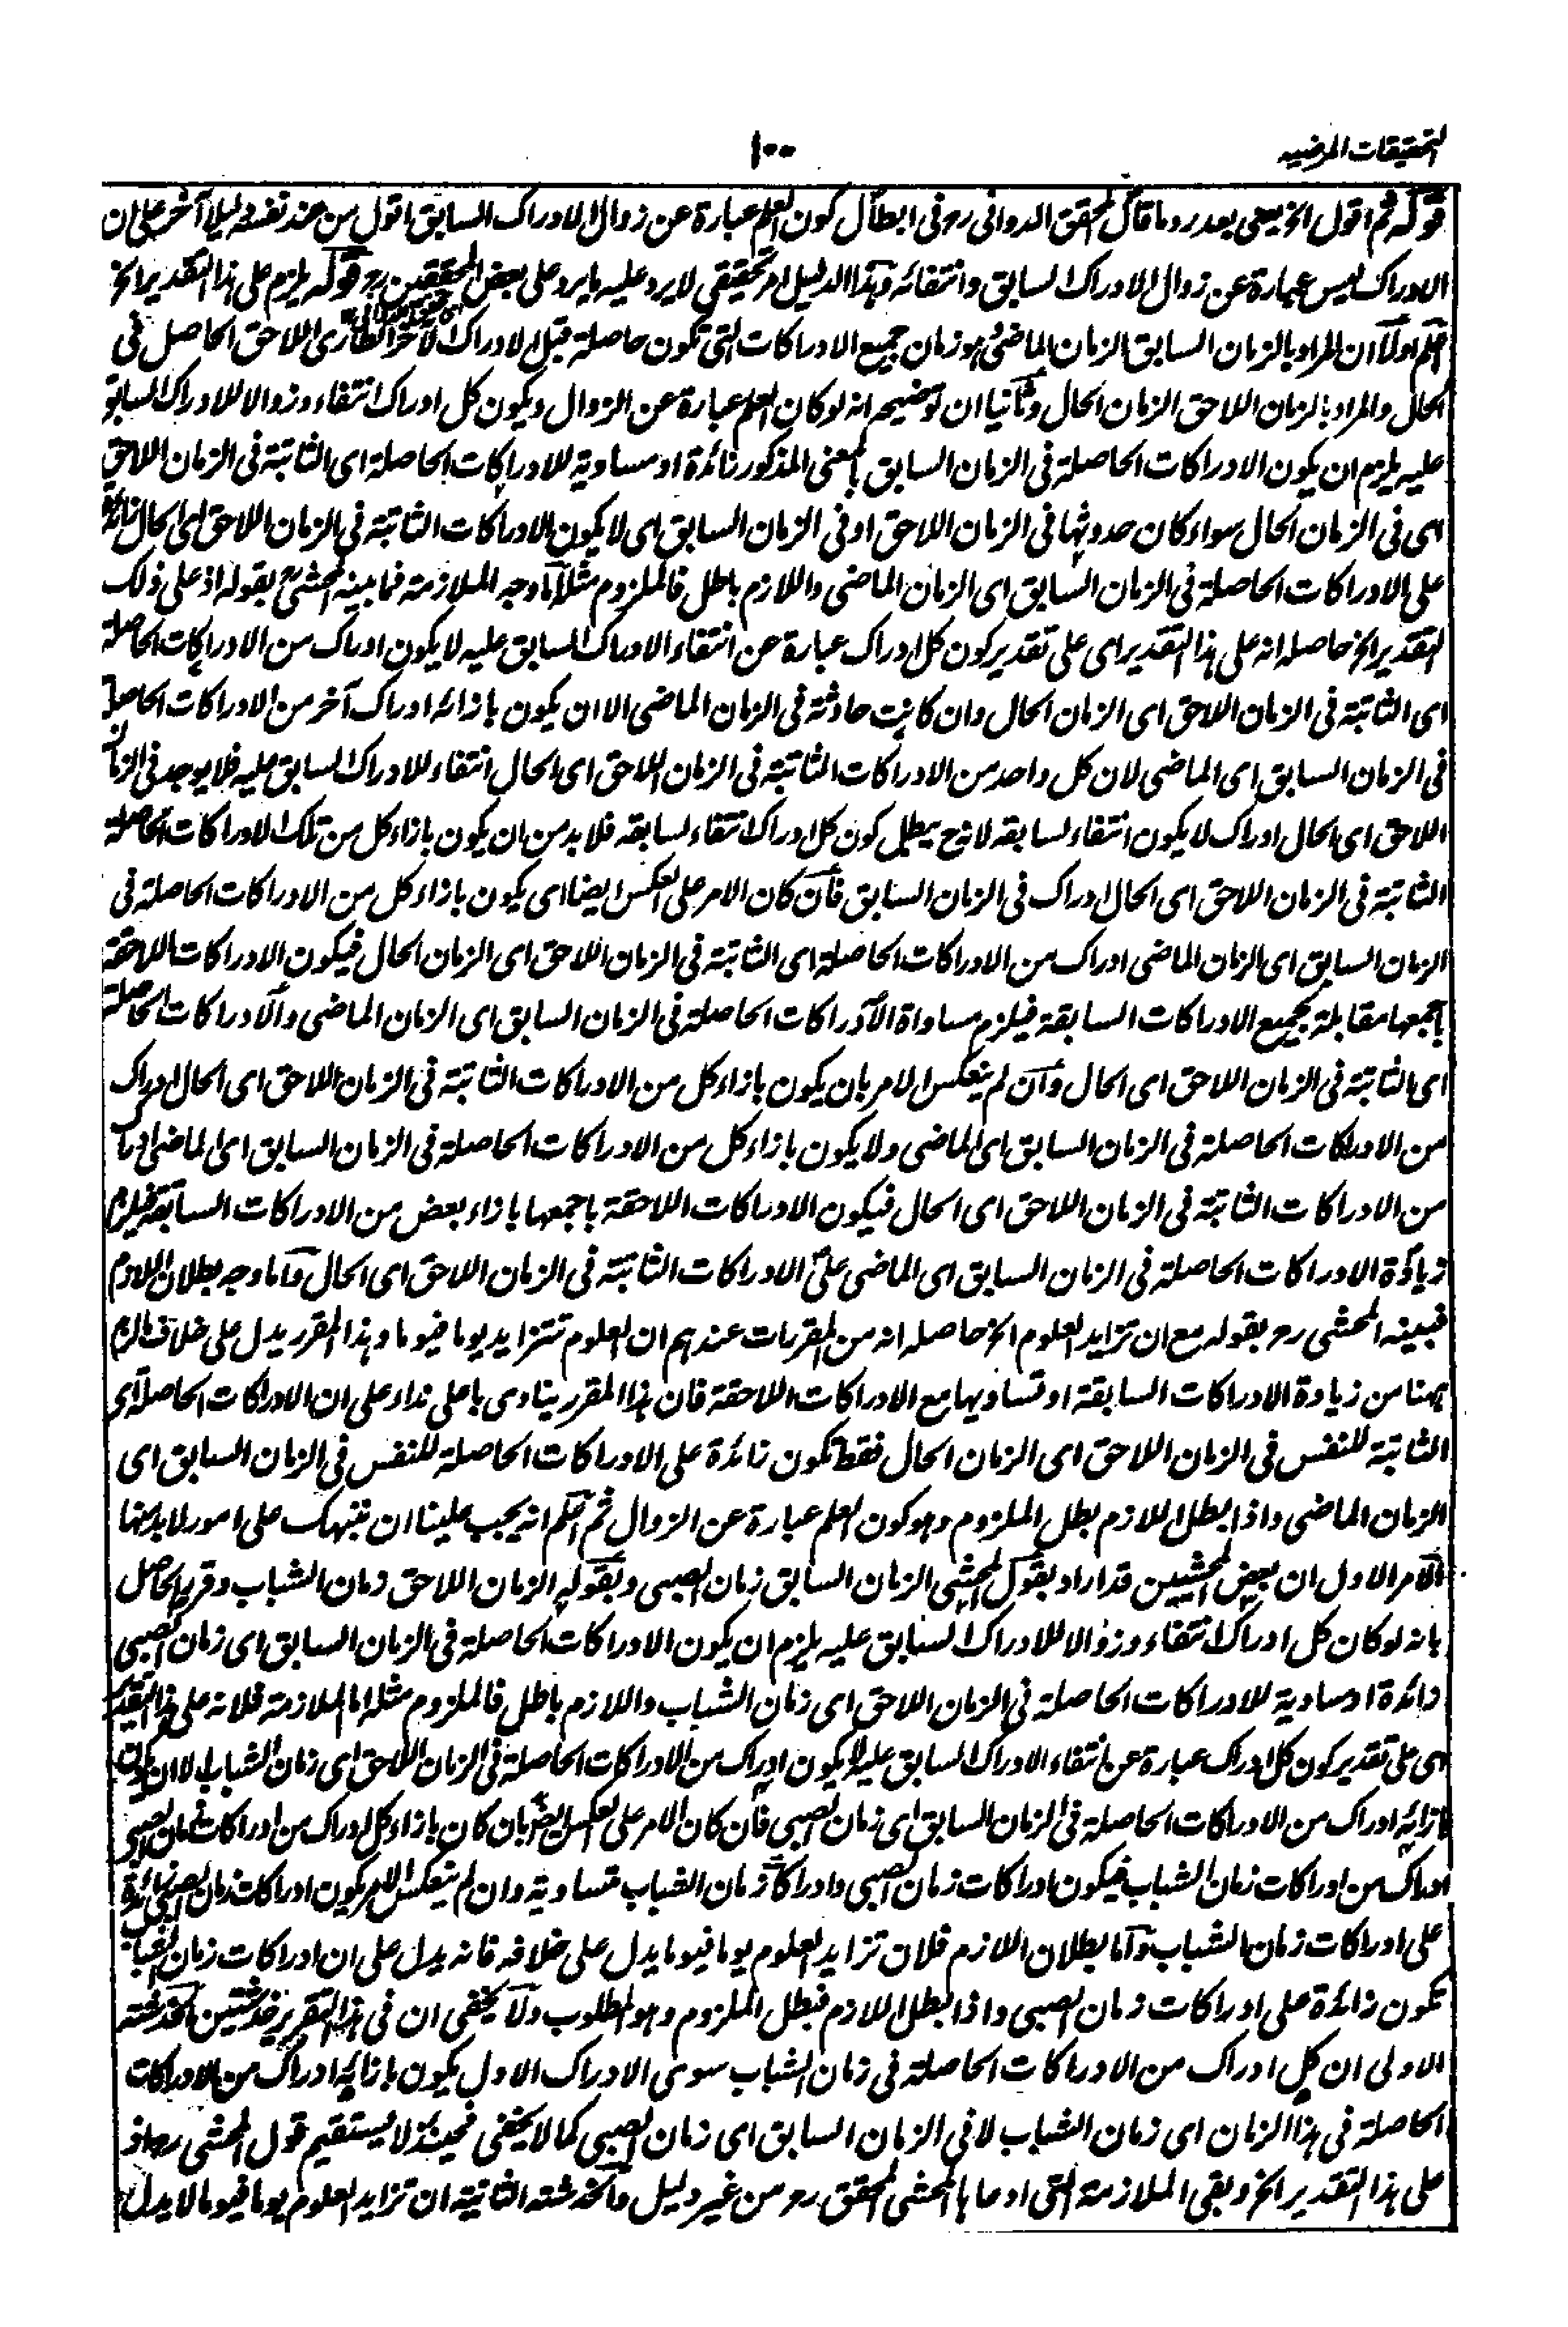 التحقيقات المرضیه
١٠٠
قوله ثم اقول الخ یعنی بعد رد ما قال المحقق الدوانی رح فی ابطال کون العلم عبارة عن زوال الادراک السابق اقول من عند نفسی دلیلا آخر علی ان
الادراک لیس عبارة عن زوال الادراک السابق وانتفائه وهذا الدلیل امر تحقیقی لا یرد علیه ما یرد علی بعض المحققین رح قوله یلزم علی هذا التقدیر الخ
اعلم اولا ان المراد بالزمان السابق الزمان الماضی وهو زمان جمیع الادراکات التی تکون حاصلة قبل الادراک الآخر الطاری اللاحق الحاصل فی
الحال والمراد بالزمان اللاحق الزمان الحال وثانیا ان توضیحه انه لو کان العلم عبارة عن الزوال ویکون کل ادراک انتفاء وزوالا للادراک السابق
علیه یلزم ان یکون الادراکات الحاصلة فی الزمان السابق بالمعنی المذکور زائدة او مساویة للادراکات الحاصلة ای الثابتة فی الزمان اللاحق
ای فی الزمان الحال سواء کان حدوثها فی الزمان اللاحق او فی الزمان السابق ای لا یکون الادراکات الثابتة فی الزمان اللاحق ای الحال زائدة
علی الادراکات الحاصلة فی الزمان السابق ای الزمان الماضی واللازم باطل فالملزوم مثله اما وجه الملازمة فما بینه المحشی رح بقوله اذ علی ذلک
التقدیر الخ حاصله انه علی هذا التقدیر ای علی تقدیر کون کل ادراک عبارة عن انتفاء الادراک السابق علیه لا یکون ادراک من الادراکات الحاصلة
ای الثابتة فی الزمان اللاحق ای الزمان الحال وان کانت حادثة فی الزمان الماضی الا ان یکون بازائه ادراک آخر من الادراکات الحاصلة
فی الزمان السابق ای الماضی لان کل واحد من الادراکات الثابتة فی الزمان اللاحق ای الحال انتفاء للادراک السابق علیه فلا یوجد فی الزمان
اللاحق ای الحال ادراک لا یکون انتفاء لسابقه لانه ح یبطل کون کل ادراک انتفاء لسابقه فلا بد من ان یکون بازاء کل من تلک الادراکات الحاصلة
الثابتة فی الزمان اللاحق ای الحال ادراک فی الزمان السابق فان کان الامر علی العکس ایضا ای یکون بازاء کل من الادراکات الحاصلة فی
الزمان السابق ای الزمان الماضی ادراک من الادراکات الحاصلة ای الثابتة فی الزمان اللاحق ای الزمان الحال فیکون الادراکات اللاحقة
باجمعها مقابلة بجمیع الادراکات السابقة فیلزم مساواة الادراکات الحاصلة فی الزمان السابق ای الزمان الماضی والادراکات الحاصلة
ای الثابتة فی الزمان اللاحق ای الحال وان لم ینعکس الامر بان یکون بازاء کل من الادراکات الثابتة فی الزمان اللاحق ای الحال ادراک
من الادراکات الحاصلة فی الزمان السابق ای الماضی ولا یکون بازاء کل من الادراکات الحاصلة فی الزمان السابق ای الماضی ادراک
من الادراکات الثابتة فی الزمان اللاحق ای الحال فیکون الادراکات اللاحقة باجمعها بازاء بعض من الادراکات السابقة فیلزم
زیادة الادراکات الحاصلة فی الزمان السابق ای الماضی علی الادراکات الثابتة فی الزمان اللاحق ای الحال واما وجه بطلان اللازم
فبینه المحشی رح بقوله مع ان تزاید العلوم الخ حاصله انه من المقررات عندهم ان العلوم تتزاید یوما فیوما وهذا المقرر یدل علی خلاف ما لزم
ههنا من زیادة الادراکات السابقة او تساویها مع الادراکات اللاحقة فان هذا المقرر ینادی باعلی نداء علی ان الادراکات الحاصلة ای
الثابتة للنفس فی الزمان اللاحق ای الزمان الحال فقط تکون زائدة علی الادراکات الحاصلة للنفس فی الزمان السابق ای
الزمان الماضی واذا بطل اللازم بطل الملزوم وهو کون العلم عبارة عن الزوال ثم اعلم انه یجب علینا ان ننبهک علی امور لا بد منها
الامر الاول ان بعض المحشیین قد اراد بقول المحشی الزمان السابق زمان الصبی وبقوله الزمان اللاحق زمان الشباب وقرر الحاصل
بانه لو کان کل ادراک انتفاء وزوالا للادراک السابق علیه یلزم ان یکون الادراکات الحاصلة فی الزمان السابق ای زمان الصبی
زائدة او مساویة للادراکات الحاصلة فی الزمان اللاحق ای زمان الشباب واللازم باطل فالملزوم مثله اما الملازمة فلانه علی هذا التقدیر
ای علی تقدیر کون کل ادراک عبارة عن انتفاء الادراک السابق علیه لا یکون ادراک من الادراکات الحاصلة فی الزمان اللاحق ای زمان الشباب الا ان یکون
بازائه ادراک من الادراکات الحاصلة فی الزمان السابق ای زمان الصبی فان کان الامر علی العکس ایضا بان کان بازاء کل ادراک من ادراکات زمان الصبی
ادراک من ادراکات زمان الشباب فیکون ادراکات زمان الصبی وادراکات زمان الشباب متساویة وان لم ینعکس الامر یکون ادراکات زمان الصبی زائدة
علی ادراکات زمان الشباب واما بطلان اللازم فلان تزاید العلوم یوما فیوما یدل علی خلافه فانه یدل علی ان ادراکات زمان الشباب
تکون زائدة علی ادراکات زمان الصبی واذا بطل اللازم فبطل الملزوم وهو المطلوب ولا یخفی ان فی هذا التقریر خدشتین الخدشة
الاولی ان کل ادراک من الادراکات الحاصلة فی زمان الشباب سوی الادراک الاول یکون بازائه ادراک من الادراکات
الحاصلة فی هذا الزمان ای زمان الشباب لا فی الزمان السابق ای زمان الصبی کما لا یخفی فحینئذ لا یستقیم قول المحشی رح اذ
علی هذا التقدیر الخ وبقی الملازمة التی ادعاها المحشی المحقق رح من غیر دلیل والخدشة الثانیة ان تزاید العلوم یوما فیوما لا یدل